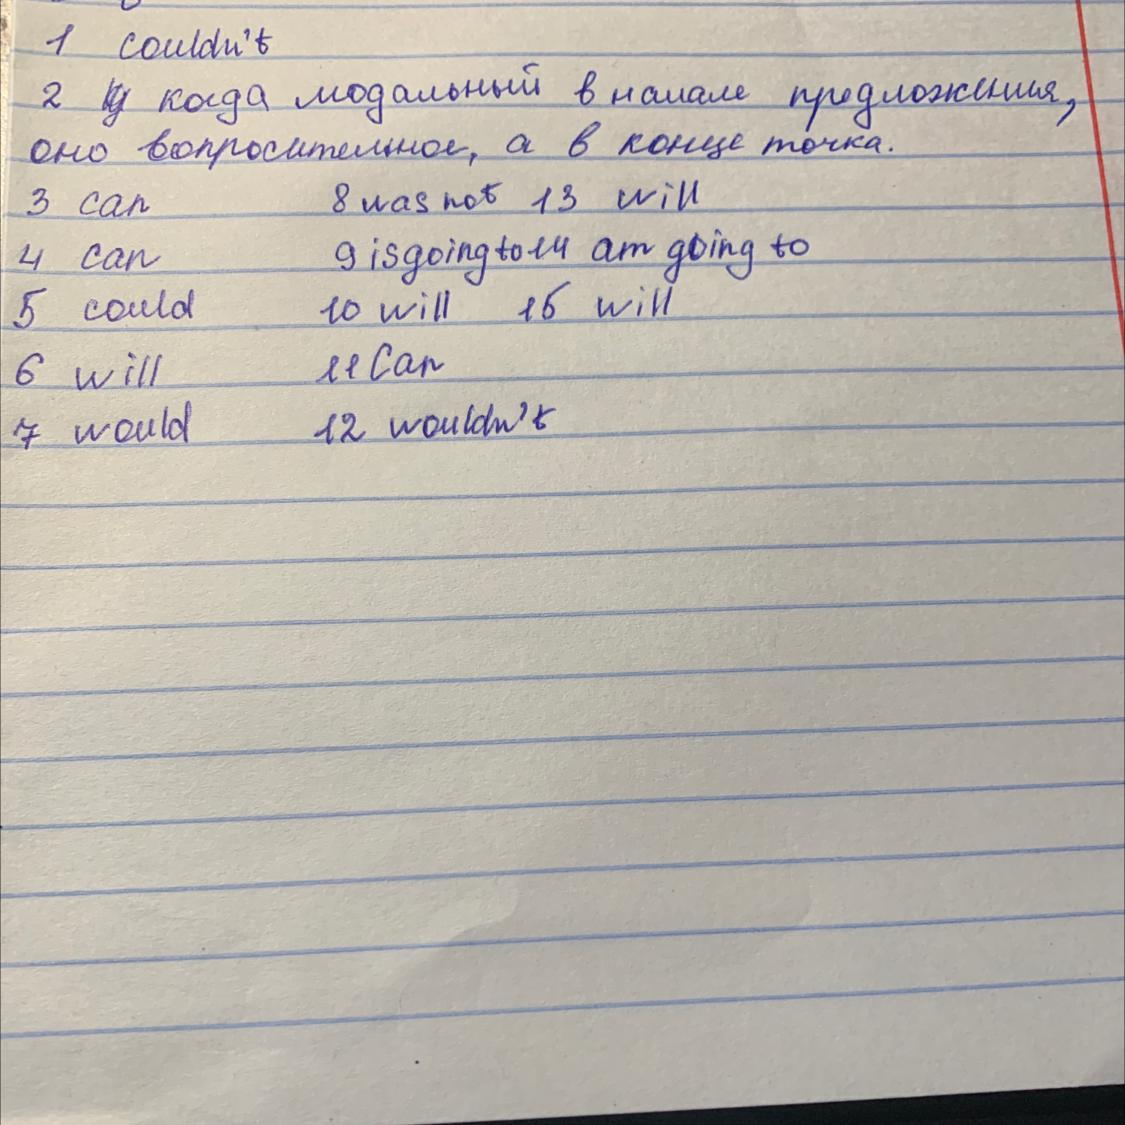 1 couldn't
2 когда модальный в начале предложения,
оно вопросительное, а в конце точка.
3 can 8 was not 13 will
4 can 9 is going to 14 am going to
5 could 10 will 15 will
6 will 11 Can
7 would 12 wouldn't